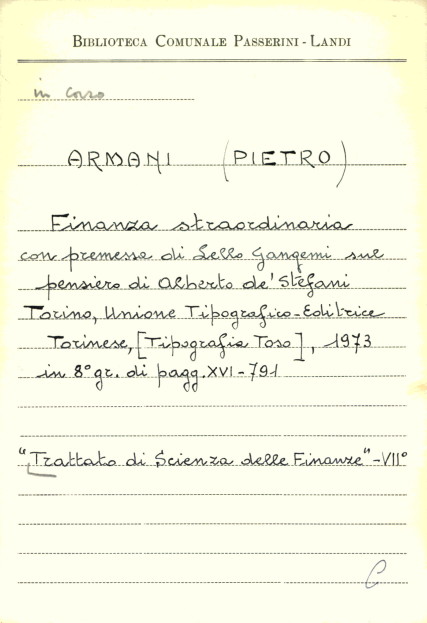 BIBLIOTECA COMUNALE PASSERINI - LANDI
in corso
ARMANI (PIETRO)
Finanza straordinaria
con premessa di Lello Gangemi sul
pensiero di Alberto de' Stefani
Torino, Unione Tipografico-Editrice
Torinese, [Tipografia Toso], 1973
in 8° gr. di pagg. XVI-791
"Trattato di Scienza delle Finanze"-VII°
C